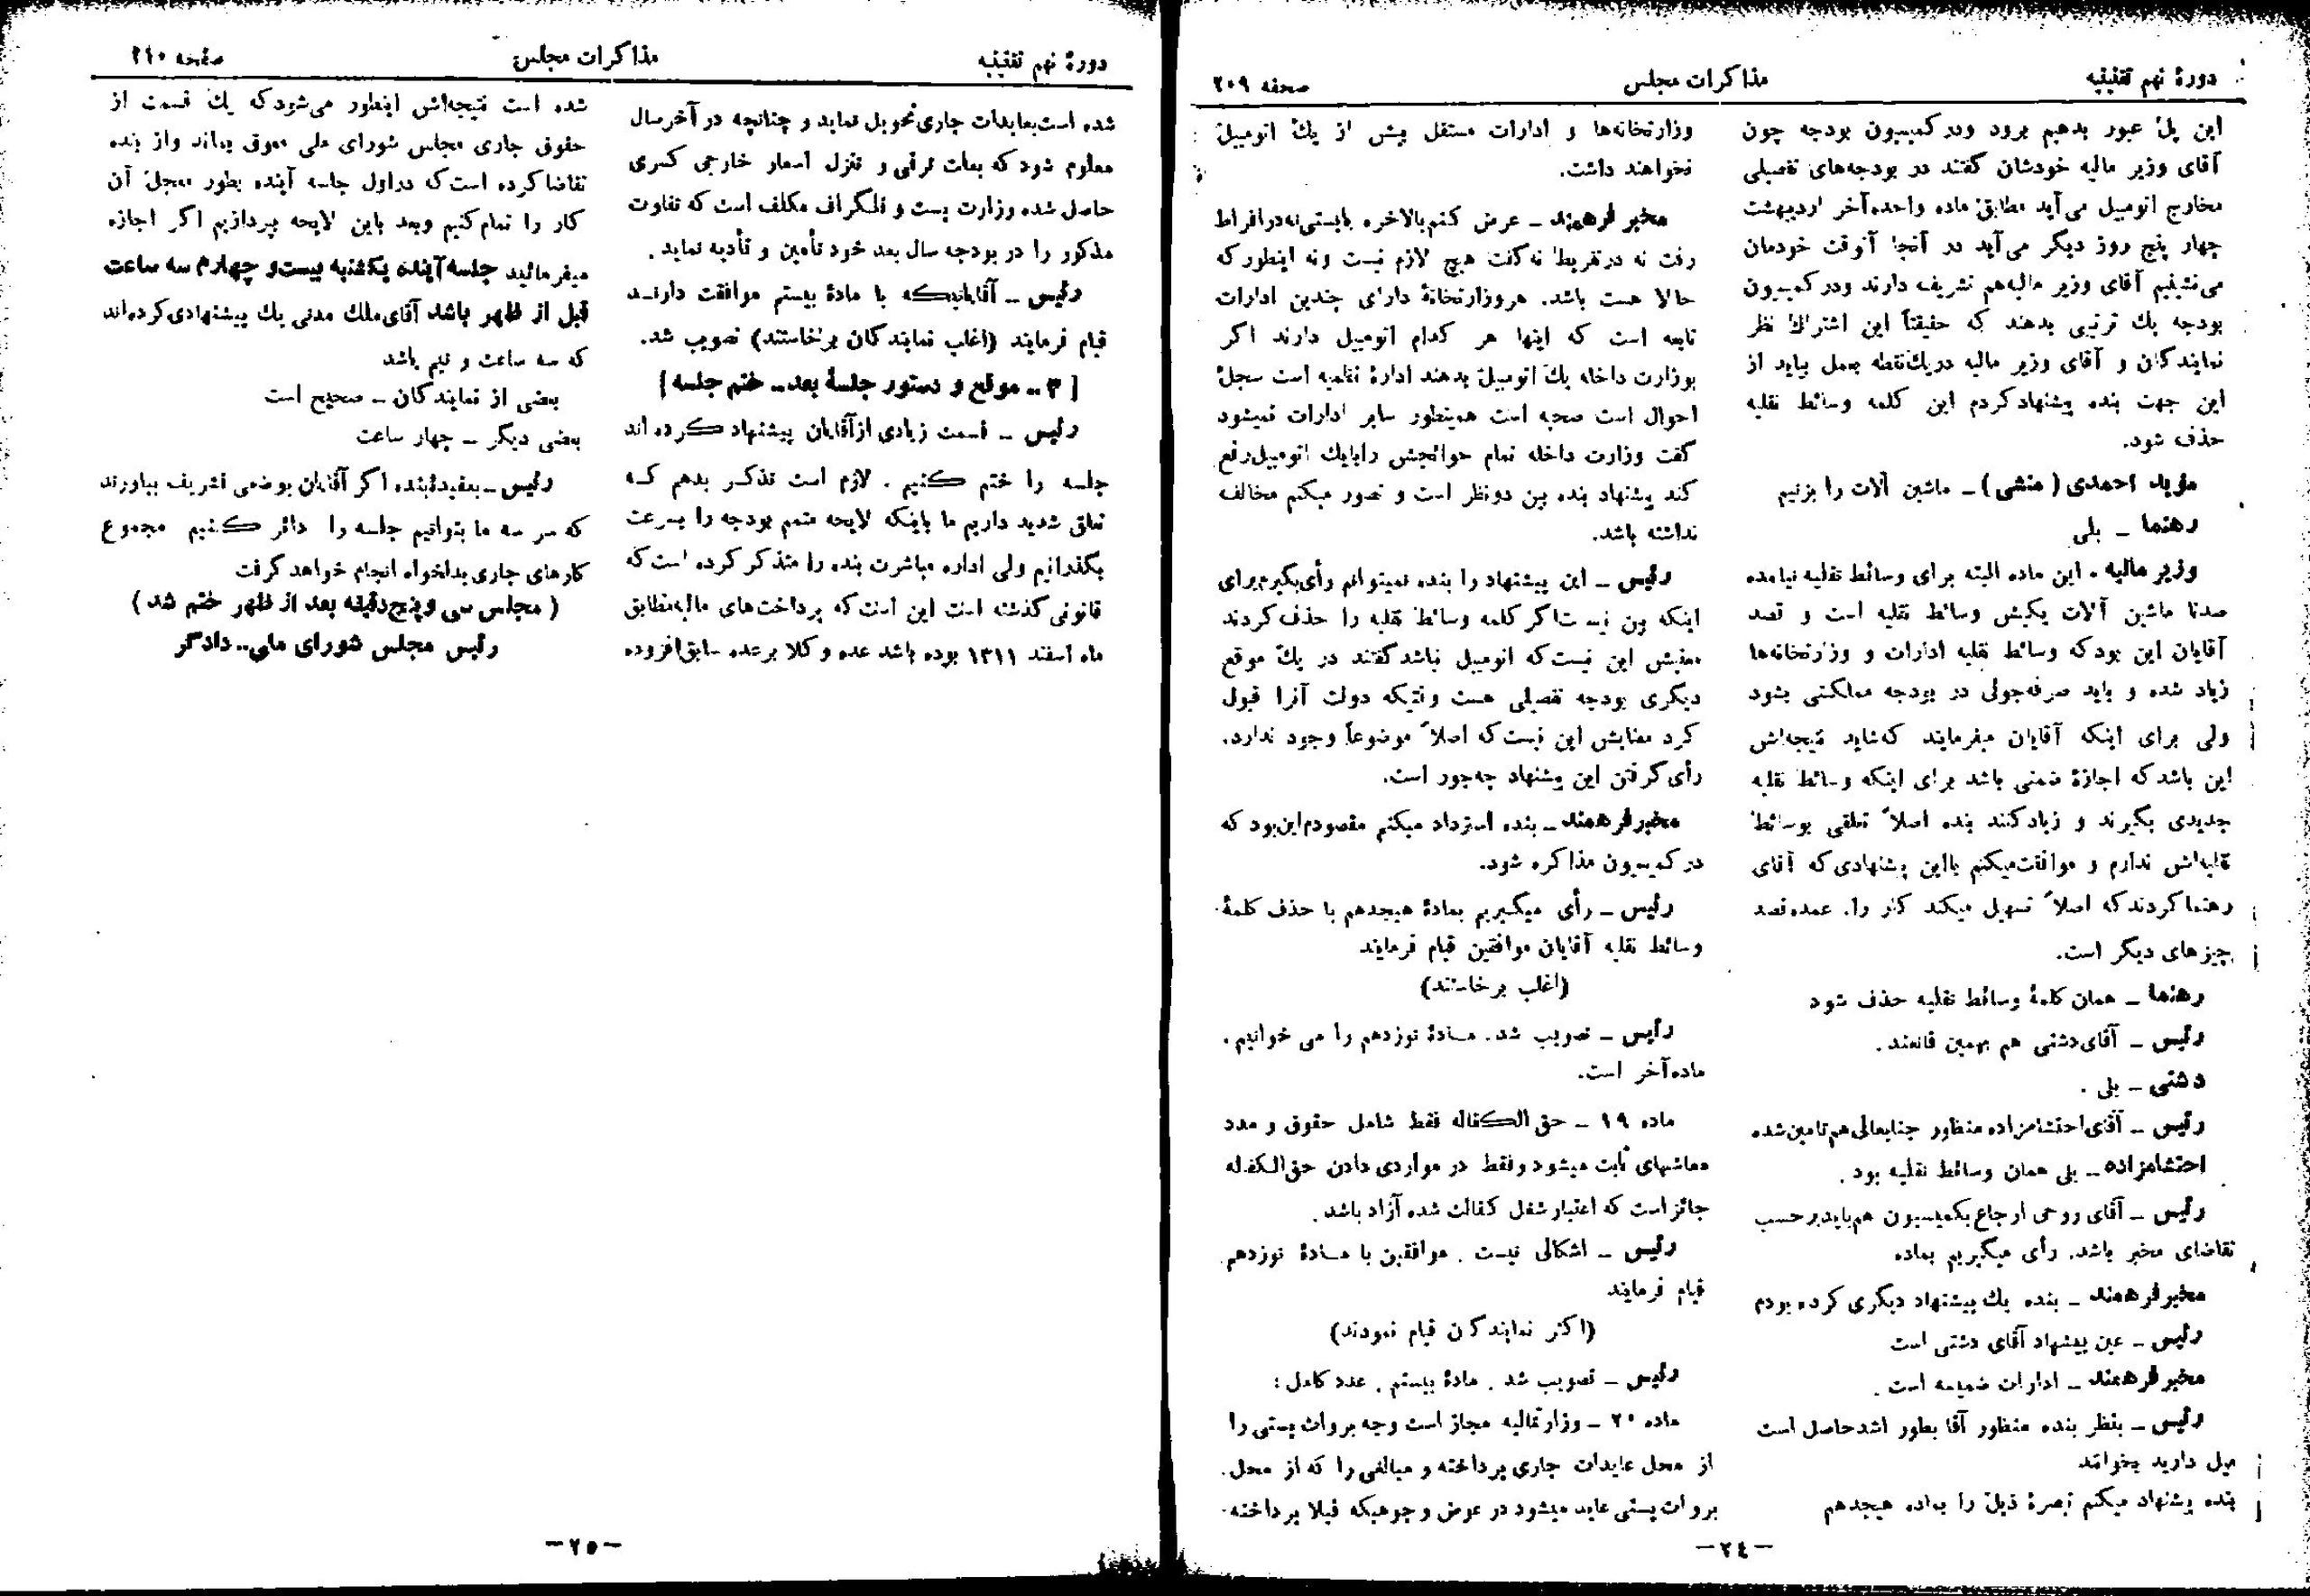 دورهٔ نهم تقنینیه
مذاکرات مجلس
صحفه ۲۰۹
این پل عبور بدهیم برود ودر کمیسیون بودجه چون
آقای وزیر مالیه خودشان گفتند در بودجه‌های تفصیلی
مخارج اتومبیل می‌آید مطابق ماده واحده آخر اردیبهشت
چهار پنج روز دیگر می‌آید در آنجا آنوقت خودمان
می‌نشینیم آقای وزیر مالیه‌هم تشریف دارند ودر کمیسیون
بودجه یك ترتیبی بدهند که حقیقتاً این اشتراك نظر
نمایندگان و آقای وزیر مالیه در یك نقطه بعمل بیاید از
این جهت بنده پیشنهاد کردم این کلمه وسائط نقلیه
حذف شود.
مؤید احمدی (منشی) ــ ماشین آلات را بزنیم
رهنما ــ بلی
وزیر مالیه . این ماده البته برای وسائط نقلیه نیامده
صدتا ماشین آلات یکیش وسائط نقلیه است و قصد
آقایان این بود که وسائط نقلیه ادارات و وزارتخانه‌ها
زیاد شده و باید صرفه‌جوئی در بودجه مملکتی بشود
ولی برای اینکه آقایان میفرمایند که شاید نتیجه‌اش
این باشد که اجازهٔ ضمنی باشد برای اینکه وسائط نقلیه
جدیدی بگیرند و زیاد کنند بنده اصلاً تعلقی بوسائط
نقلیه‌اش ندارم و موافقت میکنم بااین پیشنهادی که آقای
رهنما کردند که اصلاً تسهیل میکند کار را. عمده قصد
چیزهای دیگر است.
رهنما ــ همان کلمهٔ وسائط نقلیه حذف شود
رئیس ــ آقای دشتی هم بهمین قانعند.
دشتی ــ بلی.
رئیس ــ آقای احتشام‌زاده منظور جنابعالی هم تامین شده
احتشامزاده ــ بلی همان وسائط نقلیه بود.
رئیس ــ آقای روحی ارجاع بکمیسیون هم باید بر حسب
تقاضای مخبر باشد. رأی میگیریم بماده
مخبر فرهمند ــ بنده یك پیشنهاد دیگری کرده بودم
رئیس ــ عین پیشنهاد آقای دشتی است
مخبر فرهمند ــ ادارات ضمیمه است.
رئیس ــ بنظر بنده منظور آقا بطور اشد حاصل است
میل دارید بخوانند
بنده پیشنهاد میکنم تبصرهٔ ذیل را بماده هیجدهم
وزارتخانه‌ها و ادارات مستقل بیش از یك اتومبیل
نخواهند داشت.
مخبر فرهمند ــ عرض کنم بالاخره بایستی نه در افراط
رفت نه در تفریط نه گفت هیچ لازم نیست و نه اینطور که
حالا هست باشد. هر وزارتخانهٔ دارای چندین ادارات
تابعه است که اینها هر کدام اتومبیل دارند اگر
بوزارت داخله یك اتومبیل بدهند ادارهٔ نظمیه است سجل
احوال است صحیه است همینطور سایر ادارات نمیشود
گفت وزارت داخله تمام حوائجش را با یك اتومبیل رفع
کند پیشنهاد بنده بین دو نظر است و تصور میکنم مخالف
نداشته باشد.
رئیس ــ این پیشنهاد را بنده نمیتوانم رأی بگیرم برای
اینکه بین نیست اگر کلمه وسائط نقلیه را حذف کردند
معنیش این نیست که اتومبیل نباشد گفتند در یك موقع
دیگری بودجه تفصیلی هست وقتیکه دولت آنرا قبول
کرد معنایش این نیست که اصلاً موضوعاً وجود ندارد.
رأی گرفتن این پیشنهاد چه‌جور است.
مخبر فرهمند ــ بنده استرداد میکنم مقصودم این بود که
در کمیسیون مذاکره شود.
رئیس ــ رأی میگیریم بمادهٔ هیجدهم با حذف کلمهٔ
وسائط نقلیه آقایان موافقین قیام فرمایند
(اغلب برخاستند)
رئیس ــ تصویب شد. مادهٔ نوزدهم را می خوانیم.
ماده آخر است.
ماده ۱۹ ــ حق الکفاله فقط شامل حقوق و مدد
معاشهای ثابت میشود و فقط در مواردی دادن حق‌الکفاله
جائز است که اعتبار شغل کفالت شده آزاد باشد.
رئیس ــ اشکالی نیست. موافقین با مادهٔ نوزدهم
قیام فرمایند
(اکثر نمایندگان قیام نمودند)
رئیس ــ تصویب شد. مادهٔ بیستم. عدد کامل:
ماده ۲۰ ــ وزارت مالیه مجاز است وجه بروات پستی را
از محل عایدات جاری پرداخته و مبالغی را که از محل
بروات پستی عاید میشود در عوض وجوهیکه قبلا پرداخته
ــ ۲٤ ــ
دورهٔ نهم تقنینیه
مذاکرات مجلس
صفحه ۲۱۰
شده است بعایدات جاری تحویل نماید و چنانچه در آخر سال
معلوم شود که بعلت ترقی و تنزل اسعار خارجی کسری
حاصل شده وزارت پست و تلگراف مکلف است که تفاوت
مذکور را در بودجه سال بعد خود تأمین و تأدیه نماید.
رئیس ــ آقایانیکه با مادهٔ بیستم موافقت دارند
قیام فرمایند (اغلب نمایندگان برخاستند) تصویب شد.
[ ۳ ــ موقع و دستور جلسهٔ بعد ــ ختم جلسه ]
رئیس ــ قسمت زیادی از آقایان پیشنهاد کرده اند
جلسه را ختم کنیم . لازم است تذکر بدهم که
تعلق شدید داریم ما باینکه لایحه متمم بودجه را بسرعت
بگذرانیم ولی اداره مباشرت بنده را متذکر کرده است که
قانونی گذشته است این است که پرداخت‌های مالیه مطابق
ماه اسفند ۱۳۱۱ بوده باشد عده وکلا بر عده سابق افزوده
شده است نتیجه‌اش اینطور می‌شود که یك قسمت از
حقوق جاری مجلس شورای ملی معوق بماند و از بنده
تقاضا کرده است که در اول جلسه آینده بطور معجل آن
کار را تمام کنیم وبعد باین لایحه بپردازیم اگر اجازه
میفرمائید جلسه آینده یکشنبه بیست و چهارم سه ساعت
قبل از ظهر باشد آقای ملك مدنی یك پیشنهادی کرده‌اند
که سه ساعت و نیم باشد
بعضی از نمایندگان ــ صحیح است
بعضی دیگر ــ چهار ساعت
رئیس ــ بعقیدهٔ بنده اگر آقایان بوضعی تشریف بیاورند
که سر سه ما بتوانیم جلسه را دائر کنیم مجموع
کارهای جاری بدلخواه انجام خواهد گرفت
( مجلس سی و پنج دقیقه بعد از ظهر ختم شد )
رئیس مجلس شورای ملی ــ دادگر
ــ ۲٥ ــ